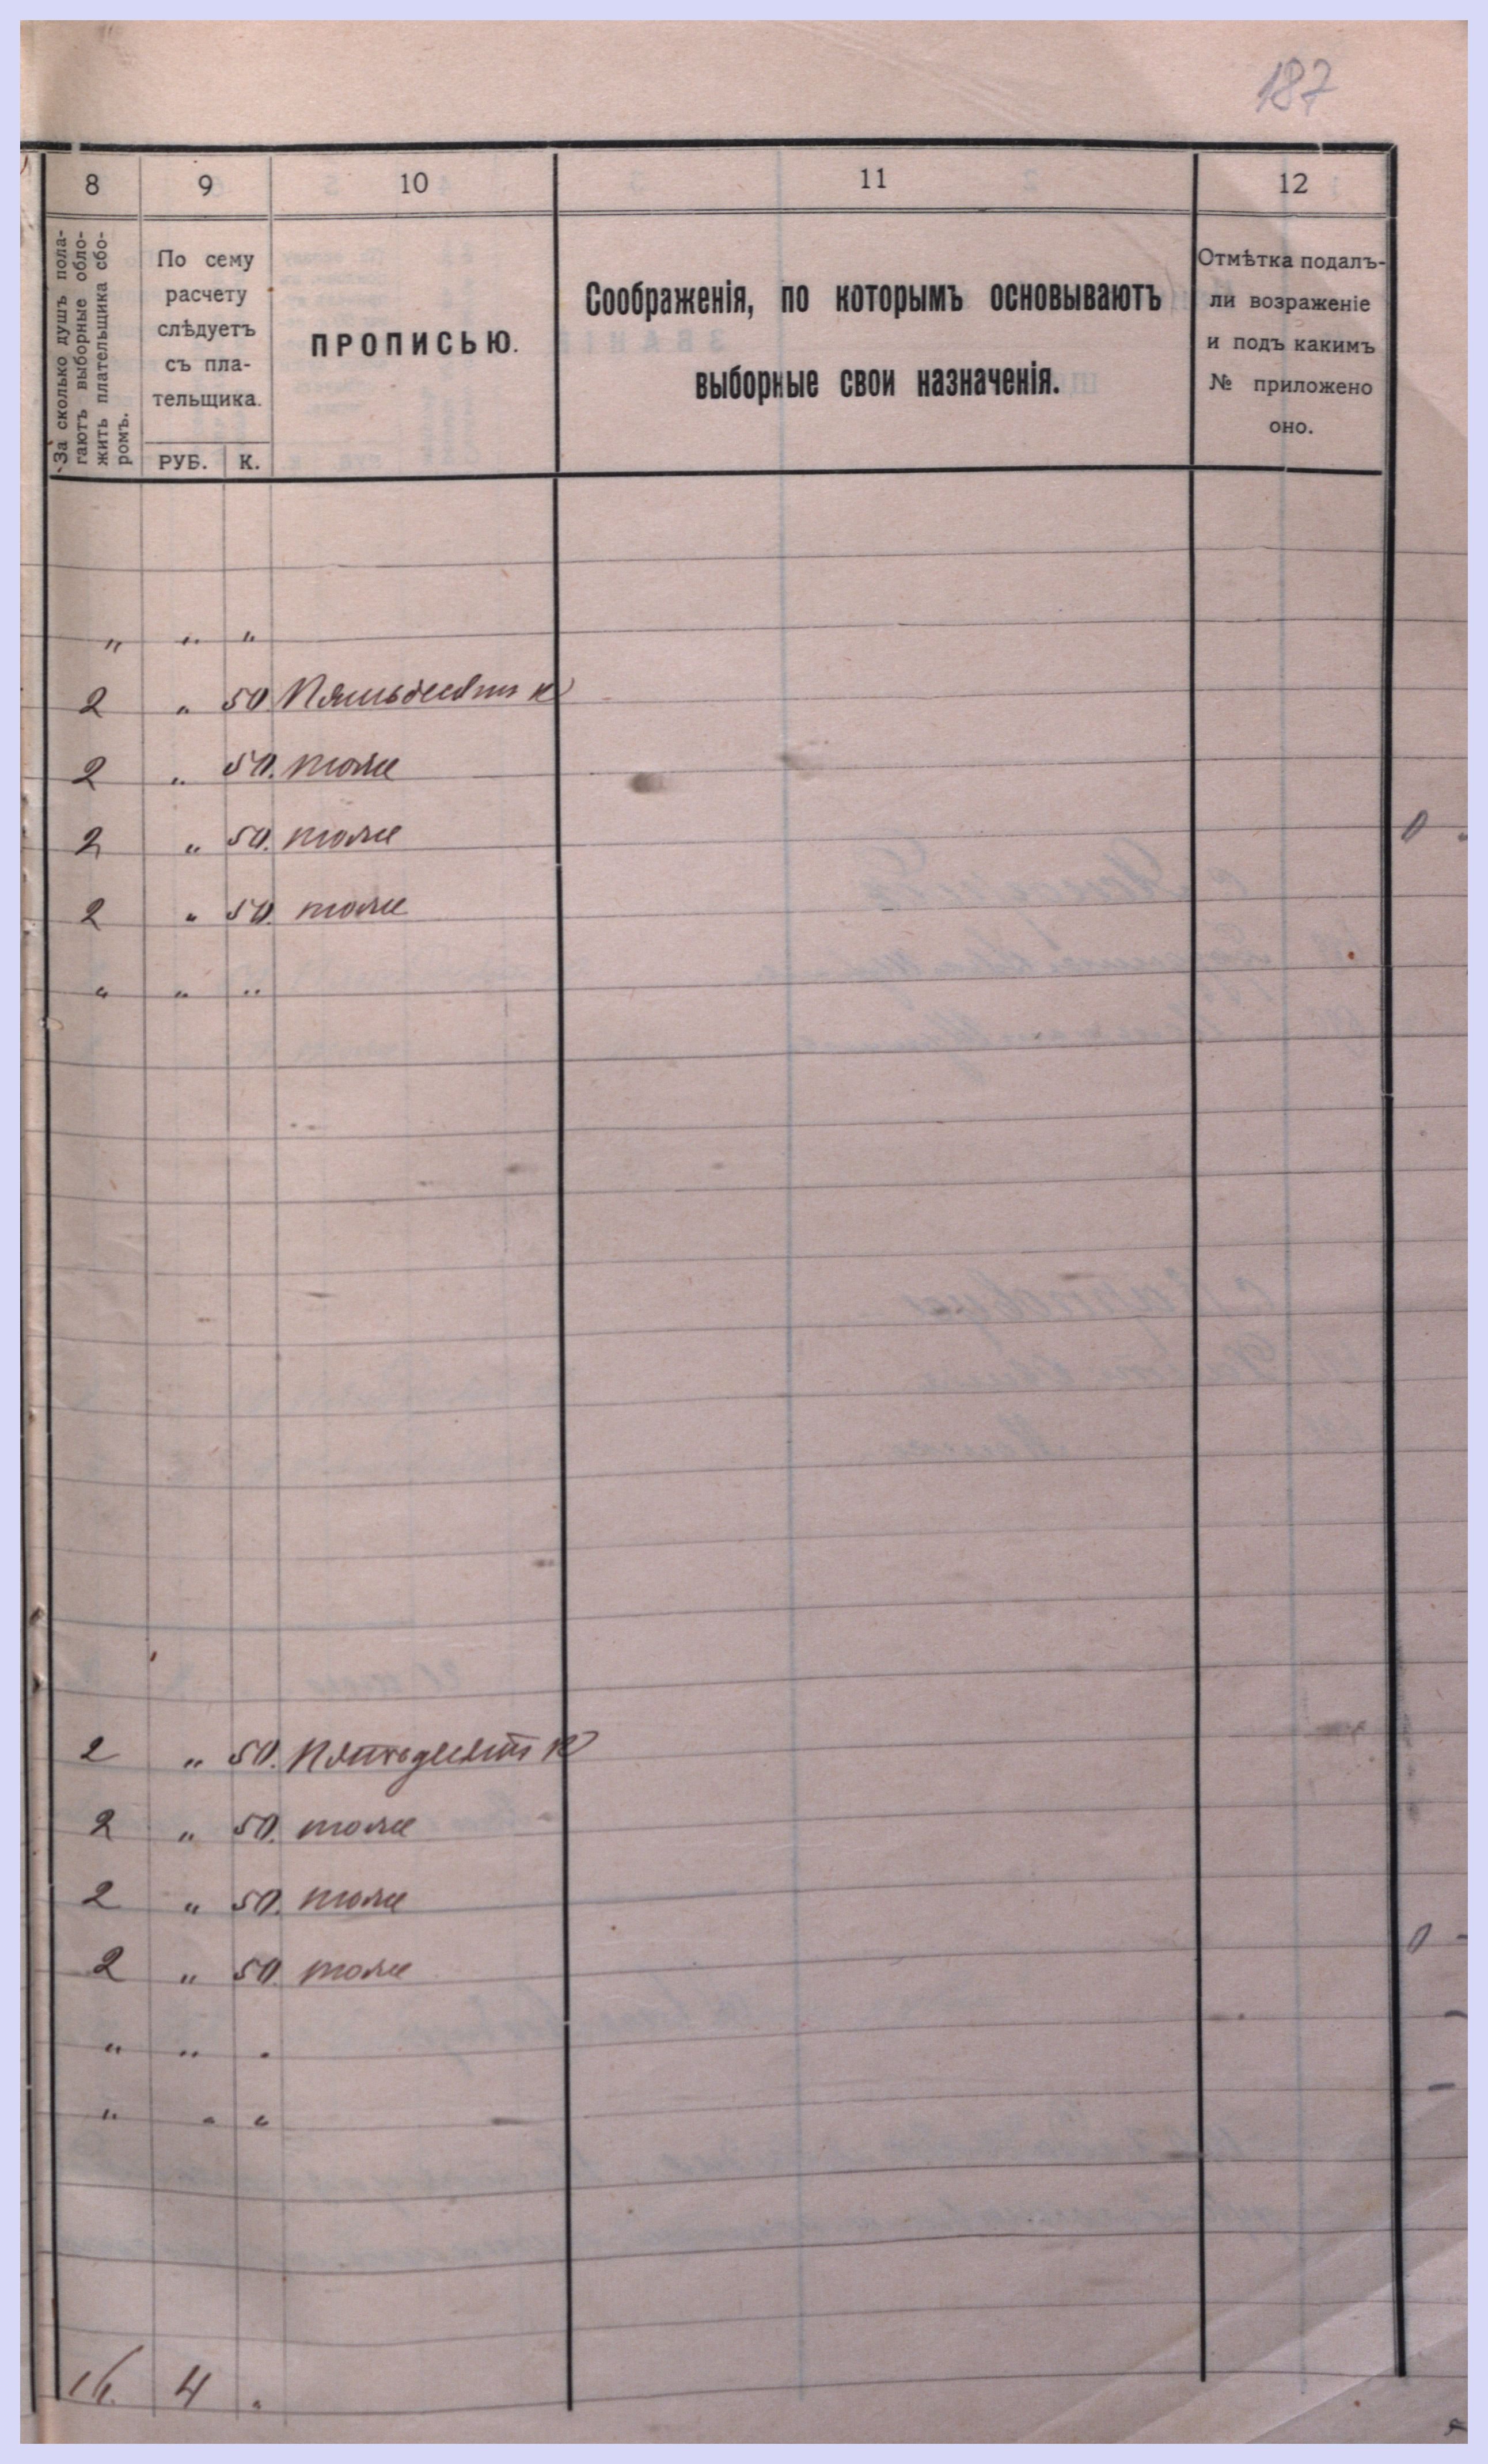 187
8 9 10 11 12
За сколько душъ пола-
гаютъ выборные обло-
жить плательщика сбо-
ромъ.
По сему
расчету
слѣдуетъ
съ пла-
тельщика.
РУБ. К.
ПРОПИСЬЮ.
Соображенія, по которымъ основываютъ
выборные свои назначенія.
Отмѣтка подалъ-
ли возраженіе
и подъ какимъ
№ приложено
оно.
" " "
2 " 50 Пятьдесят к
2 " 50. тоже
2 " 50. тоже
2 " 50. тоже
" " "
2 " 50. Пятьдесят к
2 " 50. тоже
2 " 50. тоже
2 " 50. тоже
" " "
" " "
16. 4 "